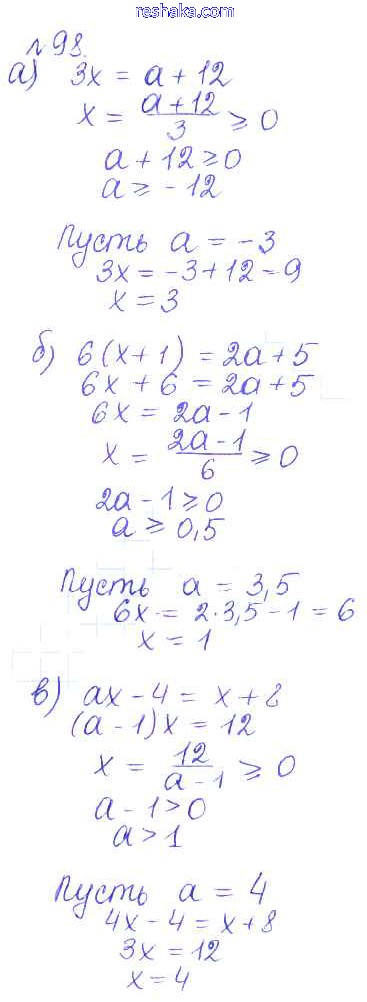 reshaka.com
№98.
а) 3x = a + 12
x = (a + 12)/3 ⩾ 0
a + 12 ⩾ 0
a ⩾ -12
Пусть a = -3
3x = -3 + 12 = 9
x = 3
б) 6(x + 1) = 2a + 5
6x + 6 = 2a + 5
6x = 2a - 1
x = (2a - 1)/6 ⩾ 0
2a - 1 ⩾ 0
a ⩾ 0,5
Пусть a = 3,5
6x = 2·3,5 - 1 = 6
x = 1
в) ax - 4 = x + 8
(a - 1)x = 12
x = 12/(a - 1) ⩾ 0
a - 1 > 0
a > 1
Пусть a = 4
4x - 4 = x + 8
3x = 12
x = 4